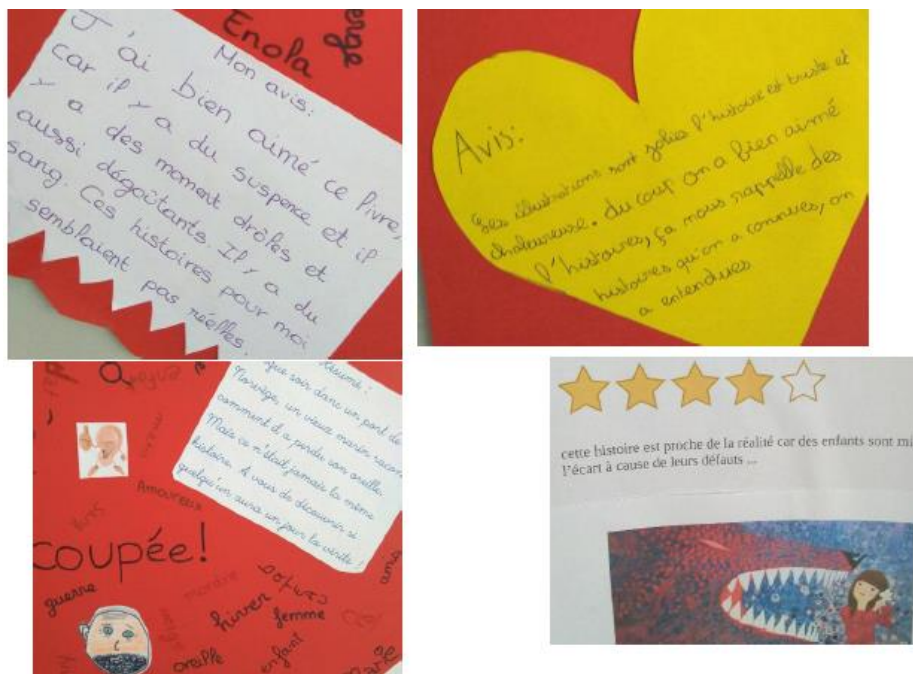 Enola
Mon avis:
J'ai bien aimé ce livre,
car il y a du suspence et il
y a des moment drôles et
aussi dégoûtants. Il y a du
sang. Ces histoires pour moi
semblaient pas réelles.
Avis:
Les illustrations sont jolies l'histoire est triste et
chaleureuse. du coup on a bien aimé
l'histoires, ça nous rappelle des
histoires qu'on a connues, on
a entendues
résumé :
que soir dans un port de
Norvège, un vieux marin racon
comment il a perdu son oreille.
Mais ce n'était jamais la même
histoire. A vous de découvrir si
quelqu'un aura un jour la vérité !
Amoureux
coupée!
guerre
mordre
neige
hiver
femme
enfant
oreille
amis
cette histoire est proche de la réalité car des enfants sont mi
l'écart à cause de leurs défauts ...